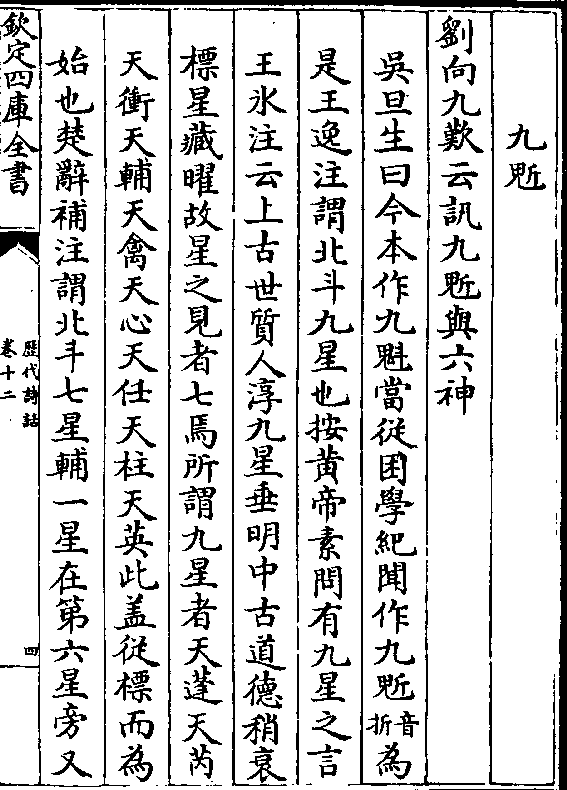 九鬿
劉向九歎云訊九鬿與六神
吳旦生曰今本作九魁當從困學紀聞作九鬿音折為
是王逸注謂北斗九星也按黄帝素問有九星之言
王氷注云上古世質人淳九星垂明中古道德稍衰
標星藏曜故星之見者七焉所謂九星者天蓬天芮
天衝天輔天禽天心天任天柱天英此盖從標而為
始也楚辭補注謂北斗七星輔一星在第六星旁又
欽定四庫全書
歷代詩話
卷十二
四